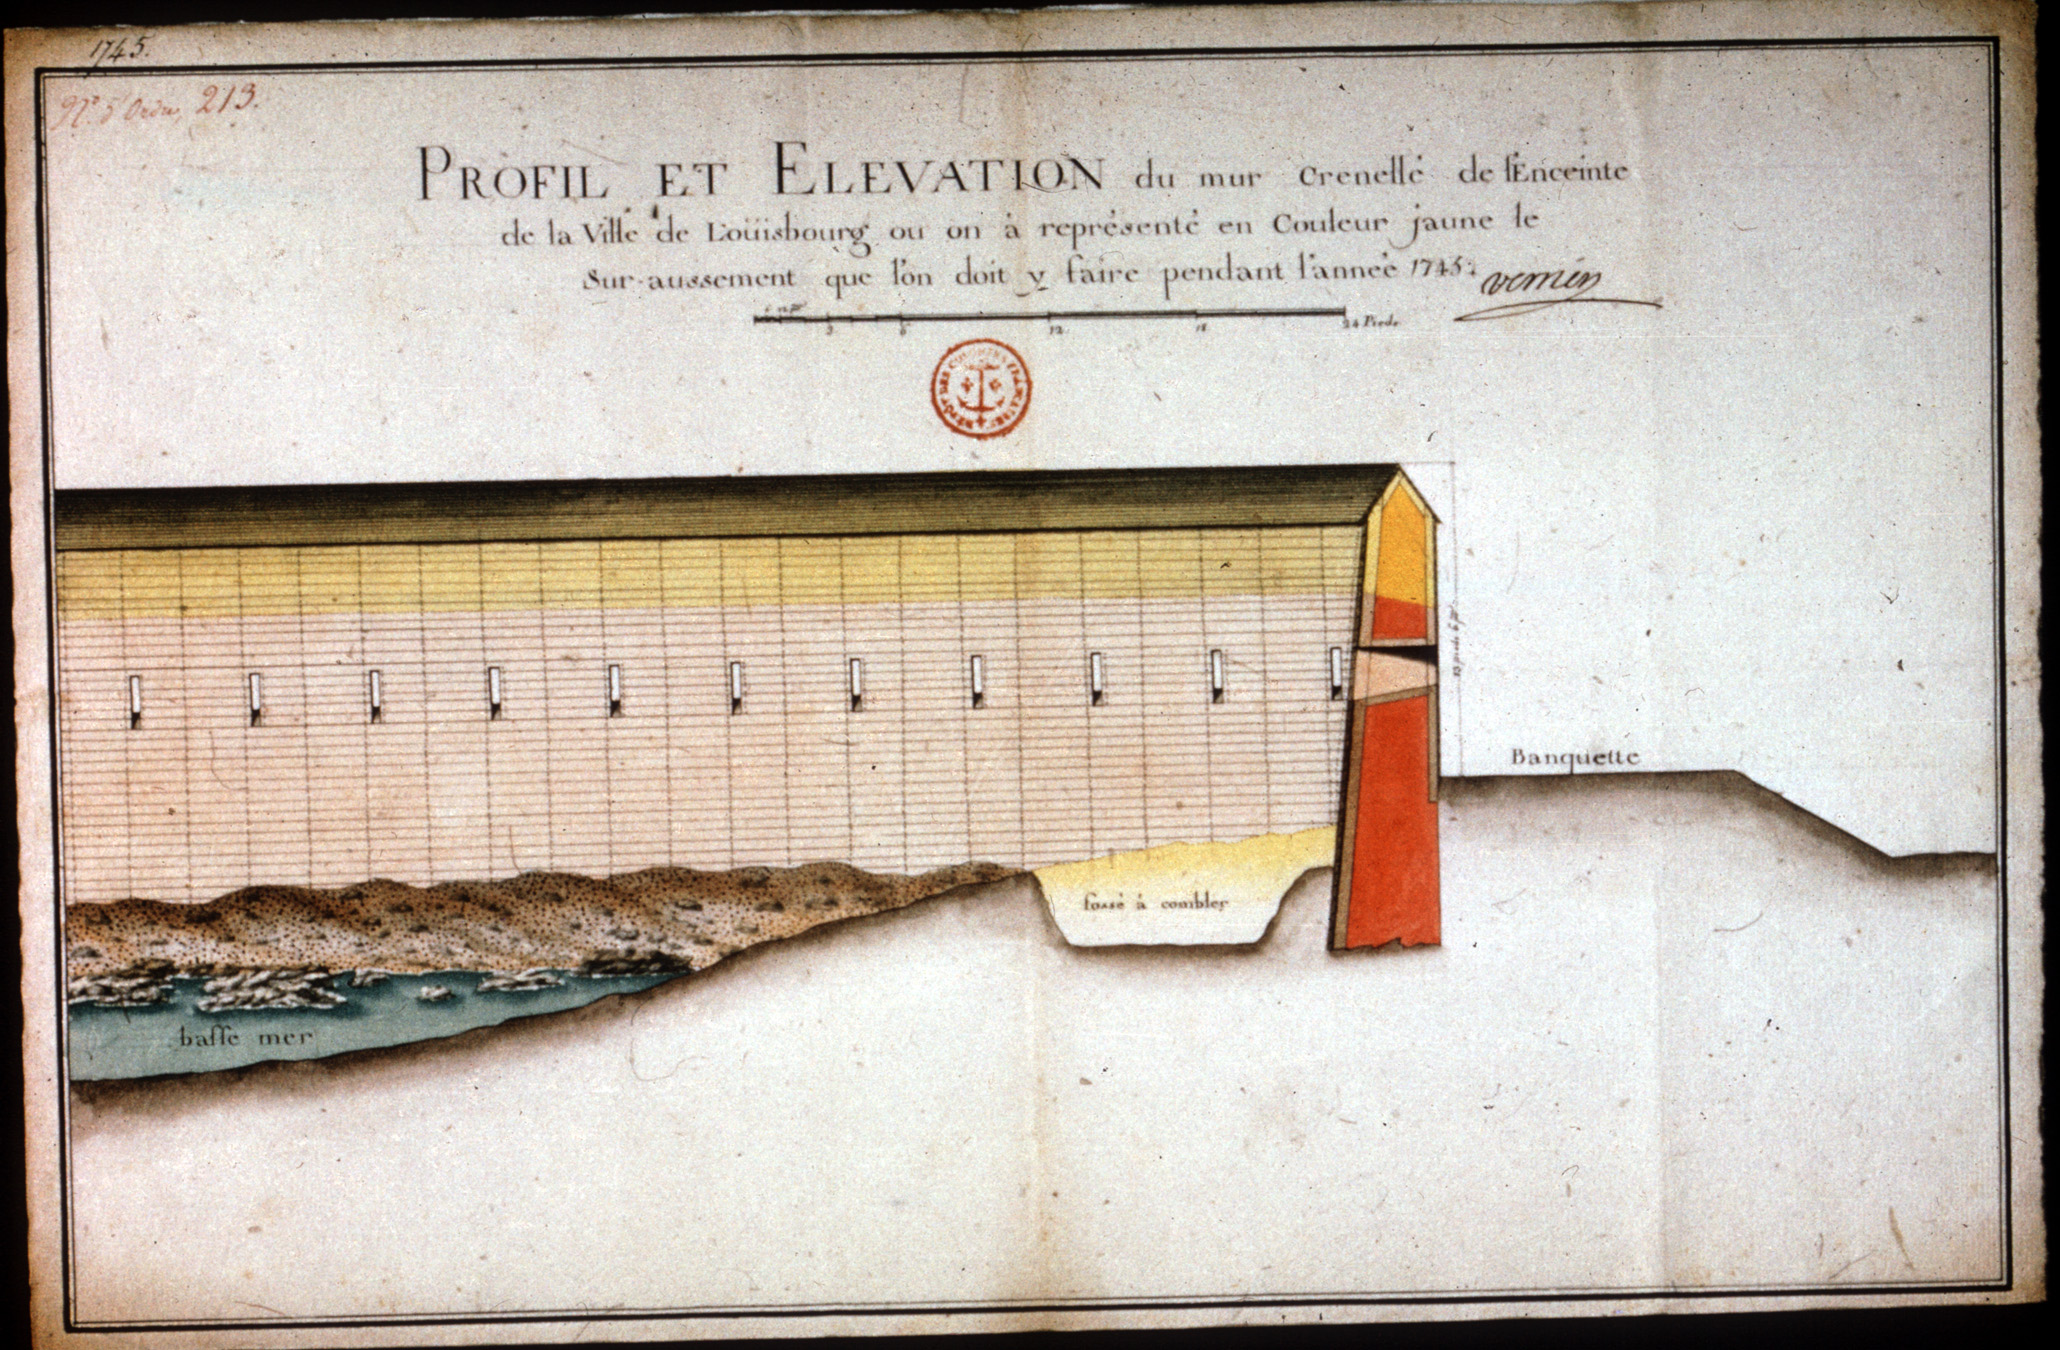 1745.
N.º d'Ordre, 213.
PROFIL ET ELEVATION du mur Crenellé de l'Enceinte
de la Ville de Loüisbourg ou on à représenté en Couleur jaune le
Sur-aussement que l'on doit y faire pendant l'anneé 1745.
verrier
3 6 12 18 24 Pieds
Banquette
fossé à combler
basse mer